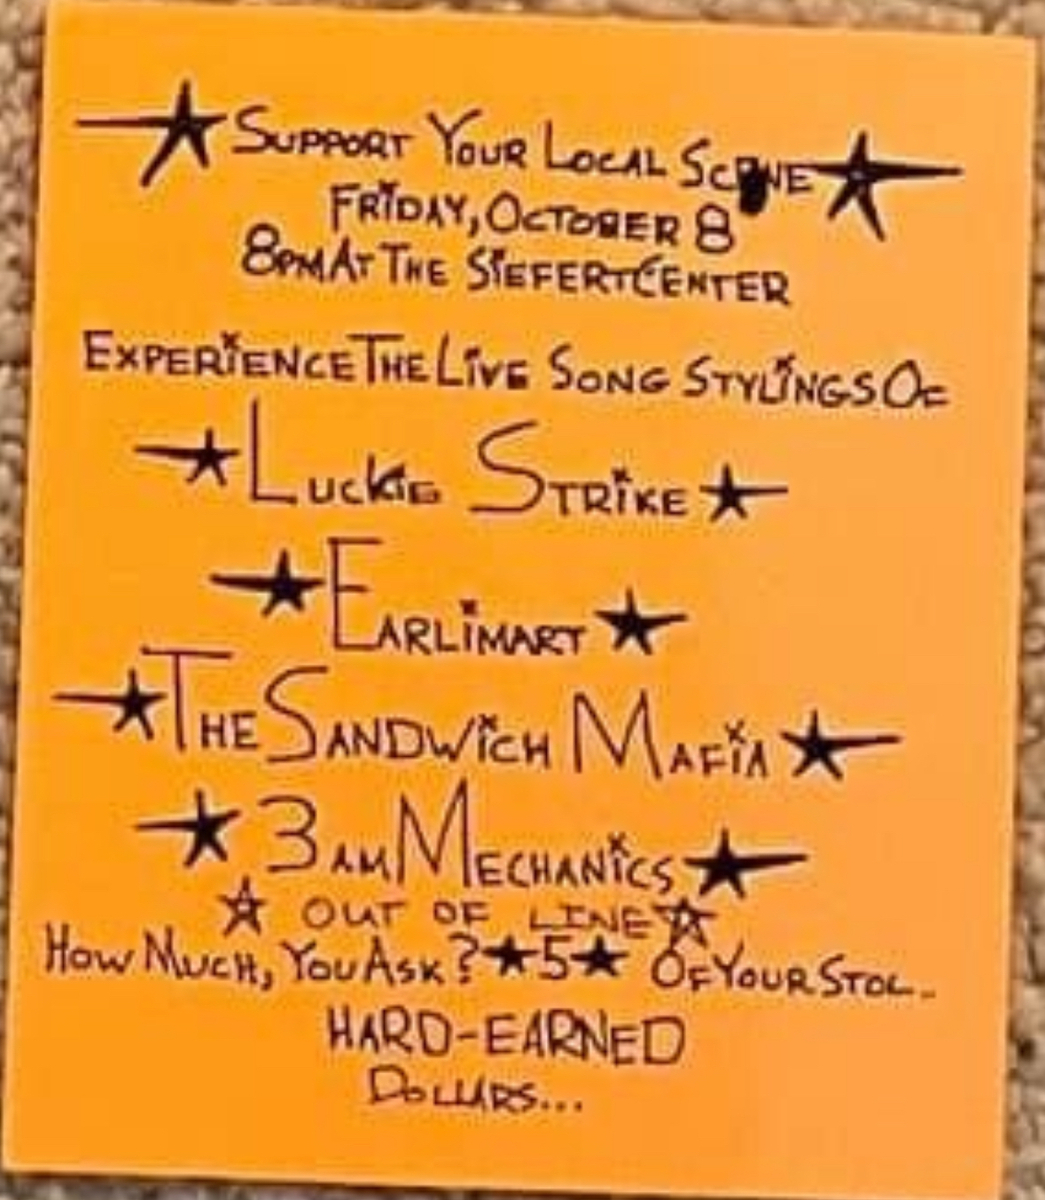 Support Your Local Scene
Friday, October 8
8pm At The Siefert Center
Experience The Live Song Stylings Of
Luckie Strike
Earlimart
The Sandwich Mafia
3am Mechanics
OUT OF LINE
How Much, You Ask? 5 Of Your Stol..
HARD-EARNED
Dollars...